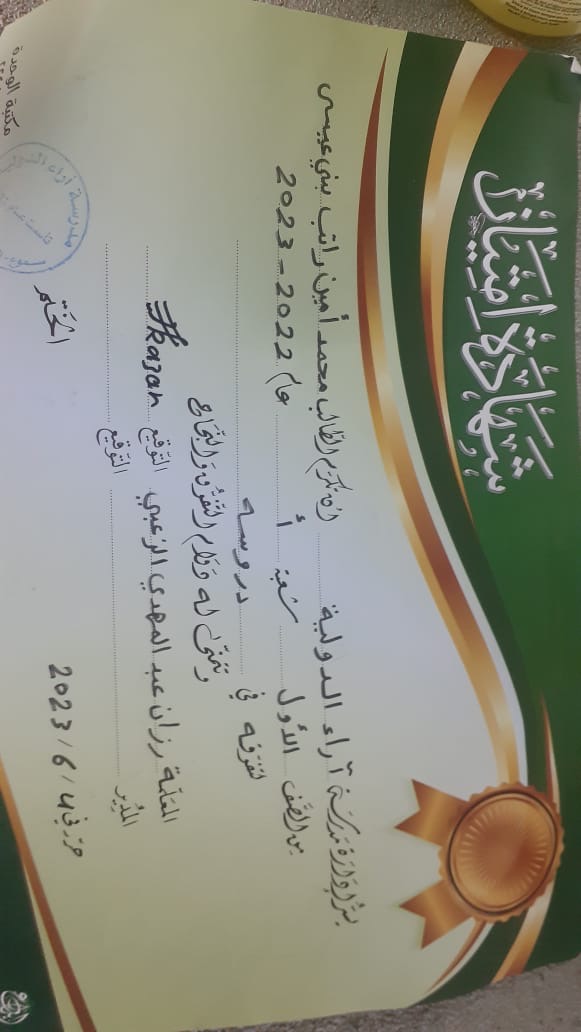 شَهَادَةُ اِمْتِيَازٍ
يسُرُّ إدَارَة مَدرسَة آراء الدولية أن تكرّم الطّالب محمد أمين راتب بني عيسى
من الصَّف الأول شعبة أ عام 2022 - 2023
لتفوّقه في دروسه
وتتمنّى له دَوَام التّفوّق وَالنّجَاح
المعلّمة رزان عبد المهدي الزعبي التّوقيع
المُدير التّوقيع
حرّر في 4 / 6 / 2023 الخَتْم
مكتبة الوحدة